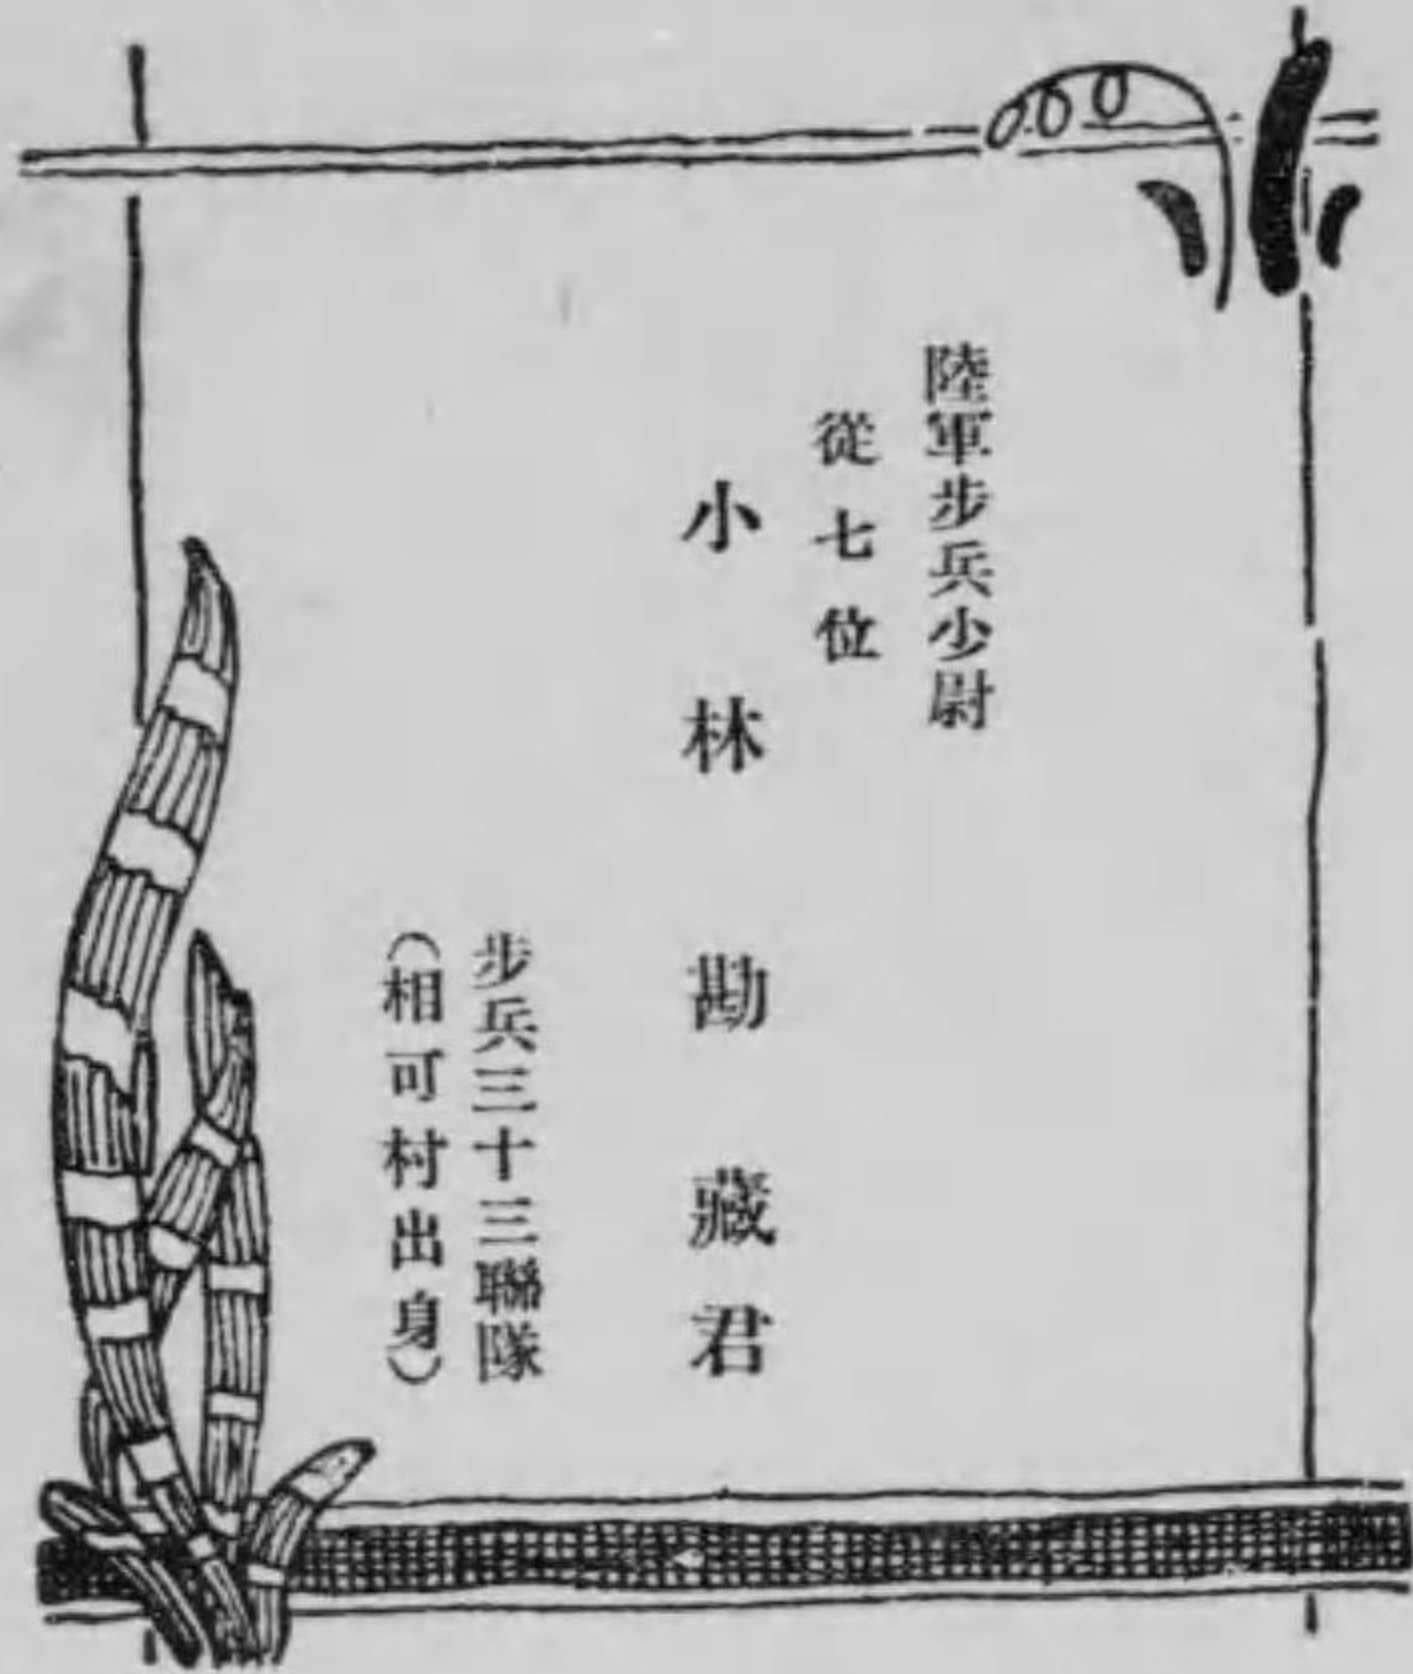 陸軍步兵少尉
從七位
小林勘藏君
步兵三十三聯隊
（相可村出身）